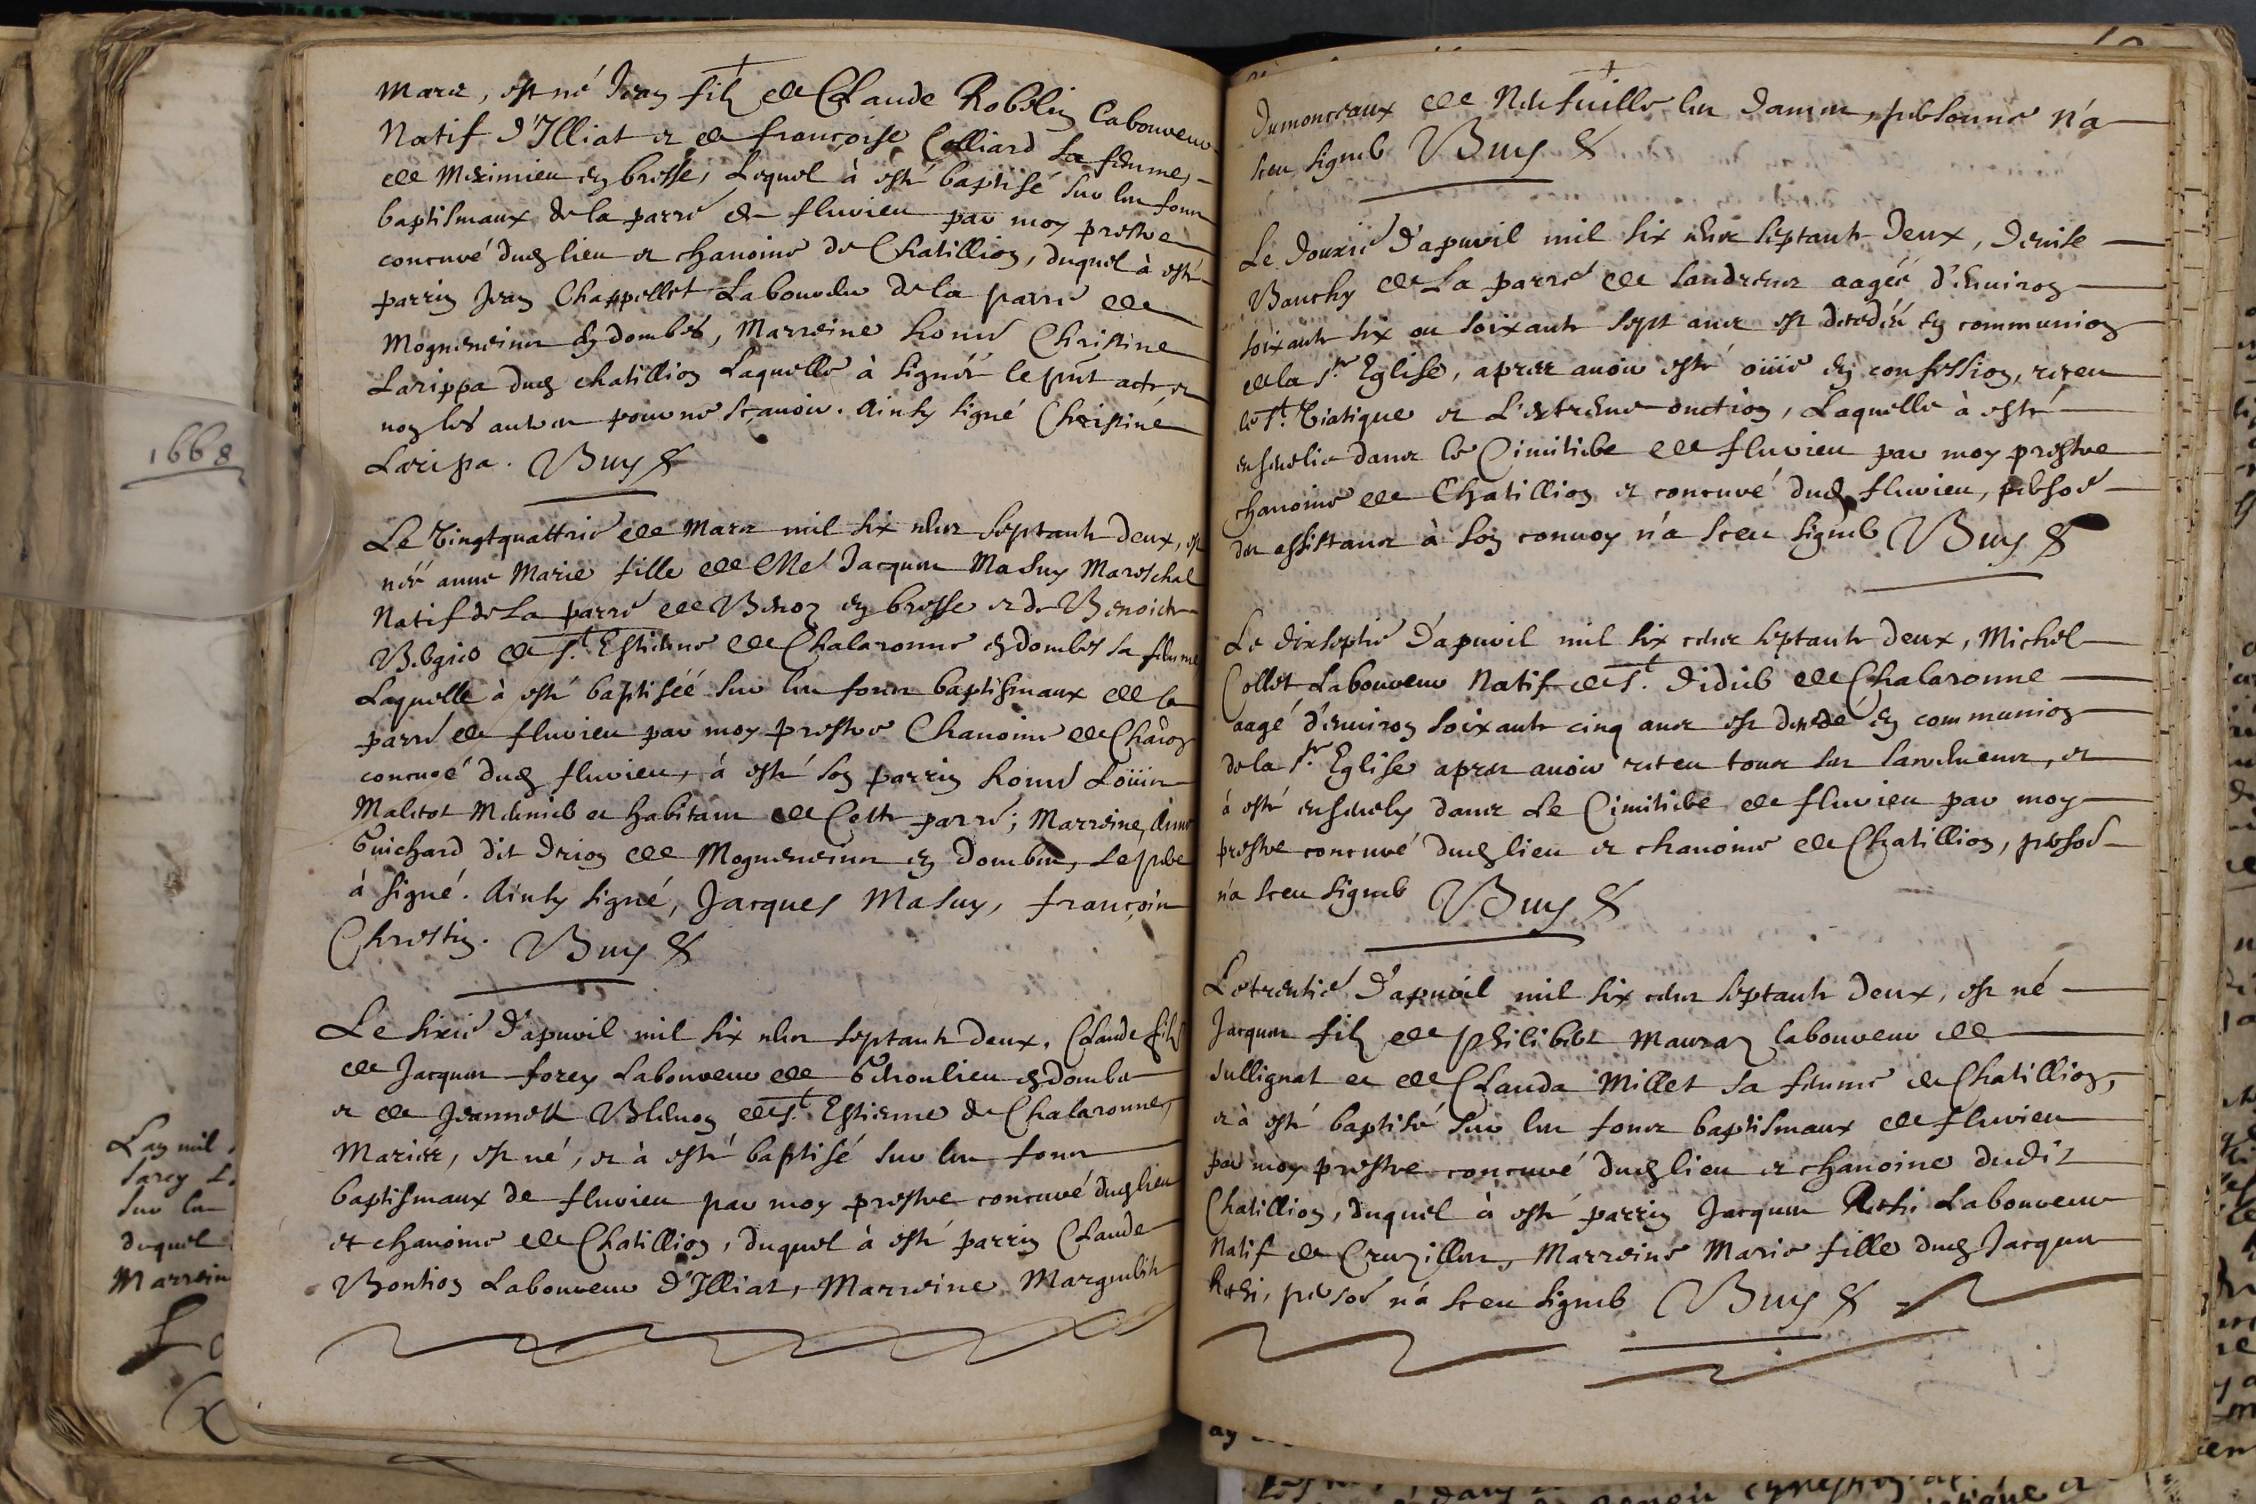 Mars, est né Jean filz de Claude Robelin Laboureur
Natif d'Illiat et de françoise Colliard sa femme,
de Meximieu en bresse, Lequel à esté baptisé sur les fons
baptismaux de la parré de fluvieu par moy prestre
concuré dud lieu et chanoine de Chatillion, duquel à esté
parrin Jean Chappellet Laboureur de la parré de
Mogneneins en dombes, Marreine honné Christine
Larippa dud chatillion Laquelle à signéé le pnt acte et
non les autres pour ne sçavoir. Ainsy signé Christine
Laripa. Buy
Le Vingtquattrié de Mars mil six cens septante deux, est
néé anne Marie fille de Me Jacques Masuy Mareschal
Natif de La parré de Benoz en bresse et de Benoicte
de St. Estienne de Chalaronne en dombes sa femme
Laquelle à esté baptiséé sur les fons baptismaux de la
parré de fluvieu par moy prestre Chanoine de Chaon
concuré dud fluvieu, à esté son parrin honné Loüis
Maletot Meunier et habitans de Cette parré; Marreine,
Guichard dit Drion de Mogneneins en dombes, Le pere
à signé. Ainsy signé, Jacques Masuy, françois
Chrestin. Buy
Le sixié d'apuril mil six cens septante deux, Claude filz
de Jacques forey Laboureur de en dombes
et de Jeannette de St. Estienne de Chalaronne,
Mariés, est né, et à esté baptisé sur les fons
baptismaux de fluvieu par moy prestre concuré dud lieu
et chanoine de Chatillion, duquel à esté parrin Claude
Bontion Laboureur d'Illiat, Marreine Marguerite
Dumonceaux de Neufville les dames, personne n'a
sceu signer Buy
Le douzié d'apuril mil six cens septante Deux, Denise
Bauchy de La parré de Sandrens aagéé d'environ
soixante six ou soixante sept ans est decedéé en communion
de la Ste Eglise, apres avoir esté oüiie en confession, receu
le St. Viatique et L'extreme onction, Laquelle à esté
ensevelie dans le Cimitiere de fluvieu par moy prestre
chanoine de Chatillion et concuré dud fluvieu, persoé
des assistans à son convoy n'a sceu signer Buy
Le dixseptié d'apuril mil six cens septante deux, Michel
Collet Laboureur Natif de St. Didier de Chalaronne
aagé d'environ soixante cinq ans est decedé en communion
de la Ste Eglise apres avoir receu tous ses sacremens, et
à esté ensevely dans Le Cimitiere de fluvieu par moy
prestre concuré dud lieu et chanoine de Chatillion, persoé
n'a sceu signer Buy
Le trentié d'apuril mil six cens septante deux, est né
Jacques filz de Philibert Mauran laboureur de
Sullignat et de Clauda Millet sa femme de Chatillion,
et à esté baptisé sur les fons baptismaux de fluvieu
par moy prestre concuré dud lieu et chanoine dudit
Chatillion, duquel à esté parrin Jacques Rothi Laboureur
Natif de Cruzilles, Marreine Marie fille dud Jacques
Rothi, persoé n'a sceu signer Buy
1668